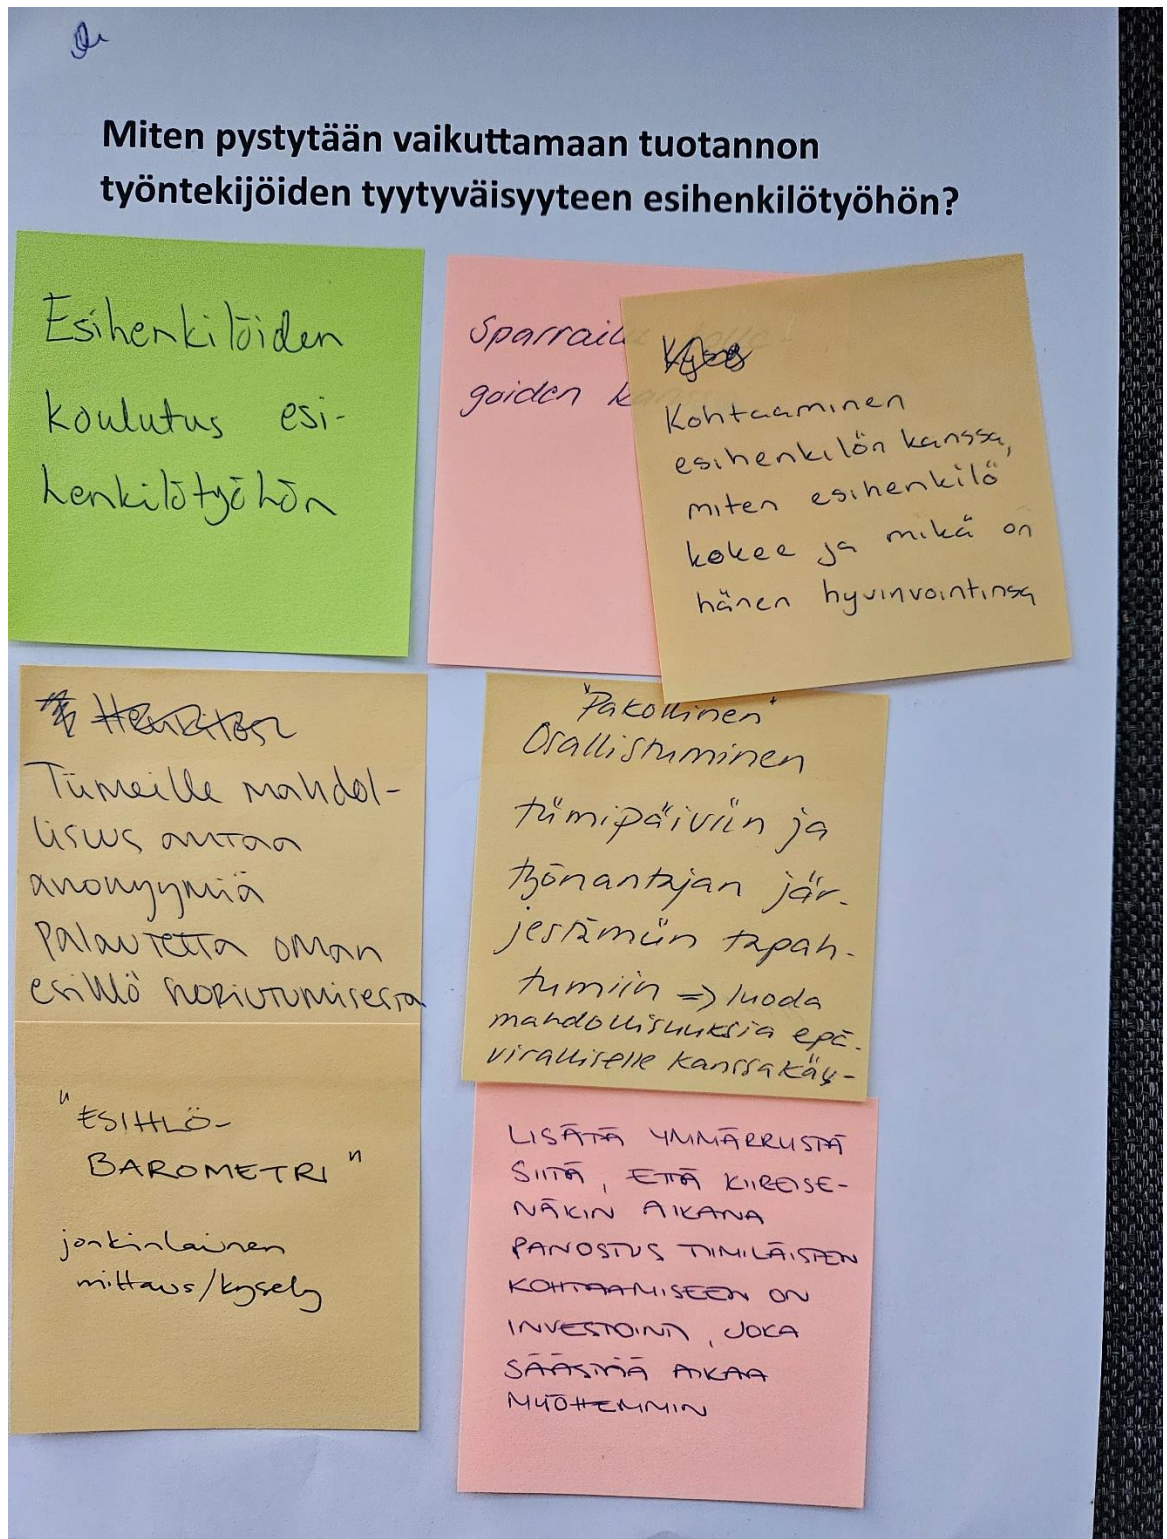 Miten pystytään vaikuttamaan tuotannon
työntekijöiden tyytyväisyyteen esihenkilötyöhön?
Esihenkilöiden
koulutus esi-
henkilötyöhön
Sparrailu kolle-
goiden kanssa
Kohtaaminen
esihenkilön kanssa,
miten esihenkilö
kokee ja mikä on
hänen hyvinvointinsa
Tiimeille mahdol-
lisuus antaa
anonyymiä
palautetta oman
esihlö suoriutumisesta
"Pakollinen"
Osallistuminen
tiimipäiviin ja
työnantajan jär-
jestämiin tapah-
tumiin => luoda
mahdollisuuksia epä-
viralliselle kanssakäy-
"ESIHLÖ-
BAROMETRI"
jonkinlainen
mittaus/kysely
LISÄTÄ YMMÄRRUSTÄ
SIITÄ, ETTÄ KIIREISE-
NÄKIN AIKANA
PANOSTUS TIIMILÄISTEN
KOHTAAMISEEN ON
INVESTOINTI, JOKA
SÄÄSTÄÄ AIKAA
MYÖHEMMIN